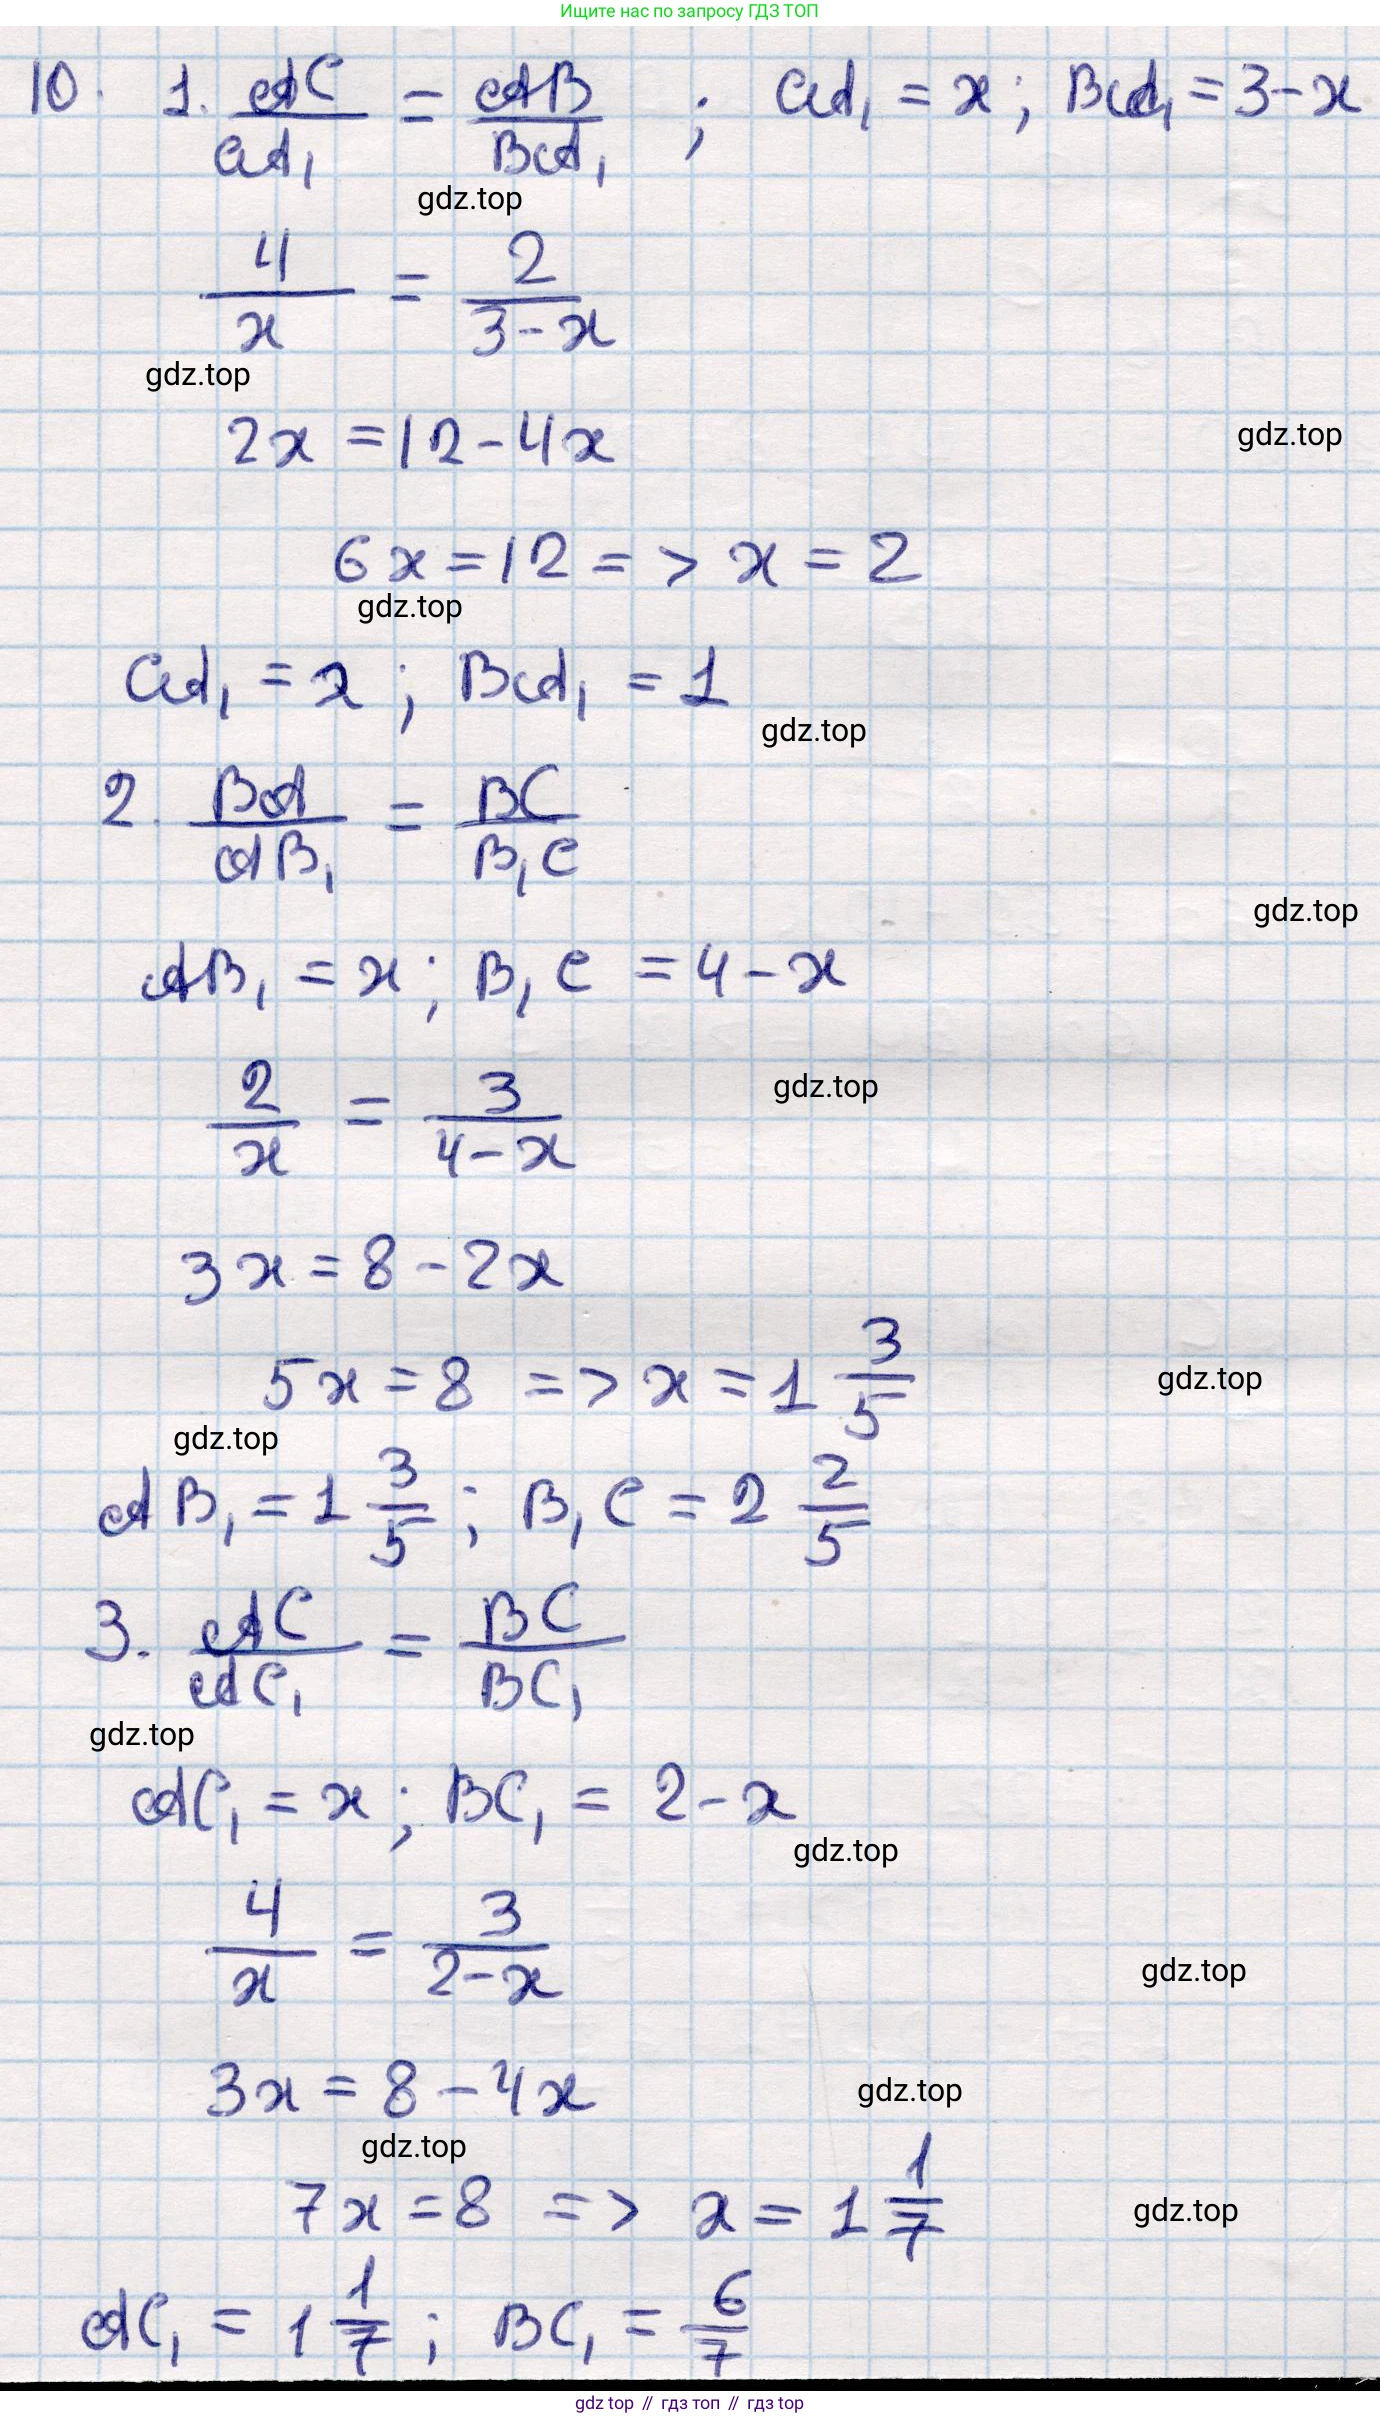 Ищите нас по запросу ГДЗ ТОП
10. 1. AC/CA₁ = AB/BA₁ ; CA₁ = x; BA₁ = 3-x
gdz.top
4/x = 2/(3-x)
gdz.top
2x = 12-4x
gdz.top
6x = 12 => x = 2
gdz.top
CA₁ = 2; BA₁ = 1
gdz.top
2. BA/AB₁ = BC/B₁C
gdz.top
AB₁ = x; B₁C = 4-x
2/x = 3/(4-x)
gdz.top
3x = 8-2x
5x = 8 => x = 1 3/5
gdz.top
gdz.top
AB₁ = 1 3/5; B₁C = 2 2/5
3. AC/AC₁ = BC/BC₁
gdz.top
AC₁ = x; BC₁ = 2-x
gdz.top
4/x = 3/(2-x)
gdz.top
3x = 8-4x
gdz.top
gdz.top
7x = 8 => x = 1 1/7
gdz.top
AC₁ = 1 1/7; BC₁ = 6/7
gdz top // гдз топ // гдз top